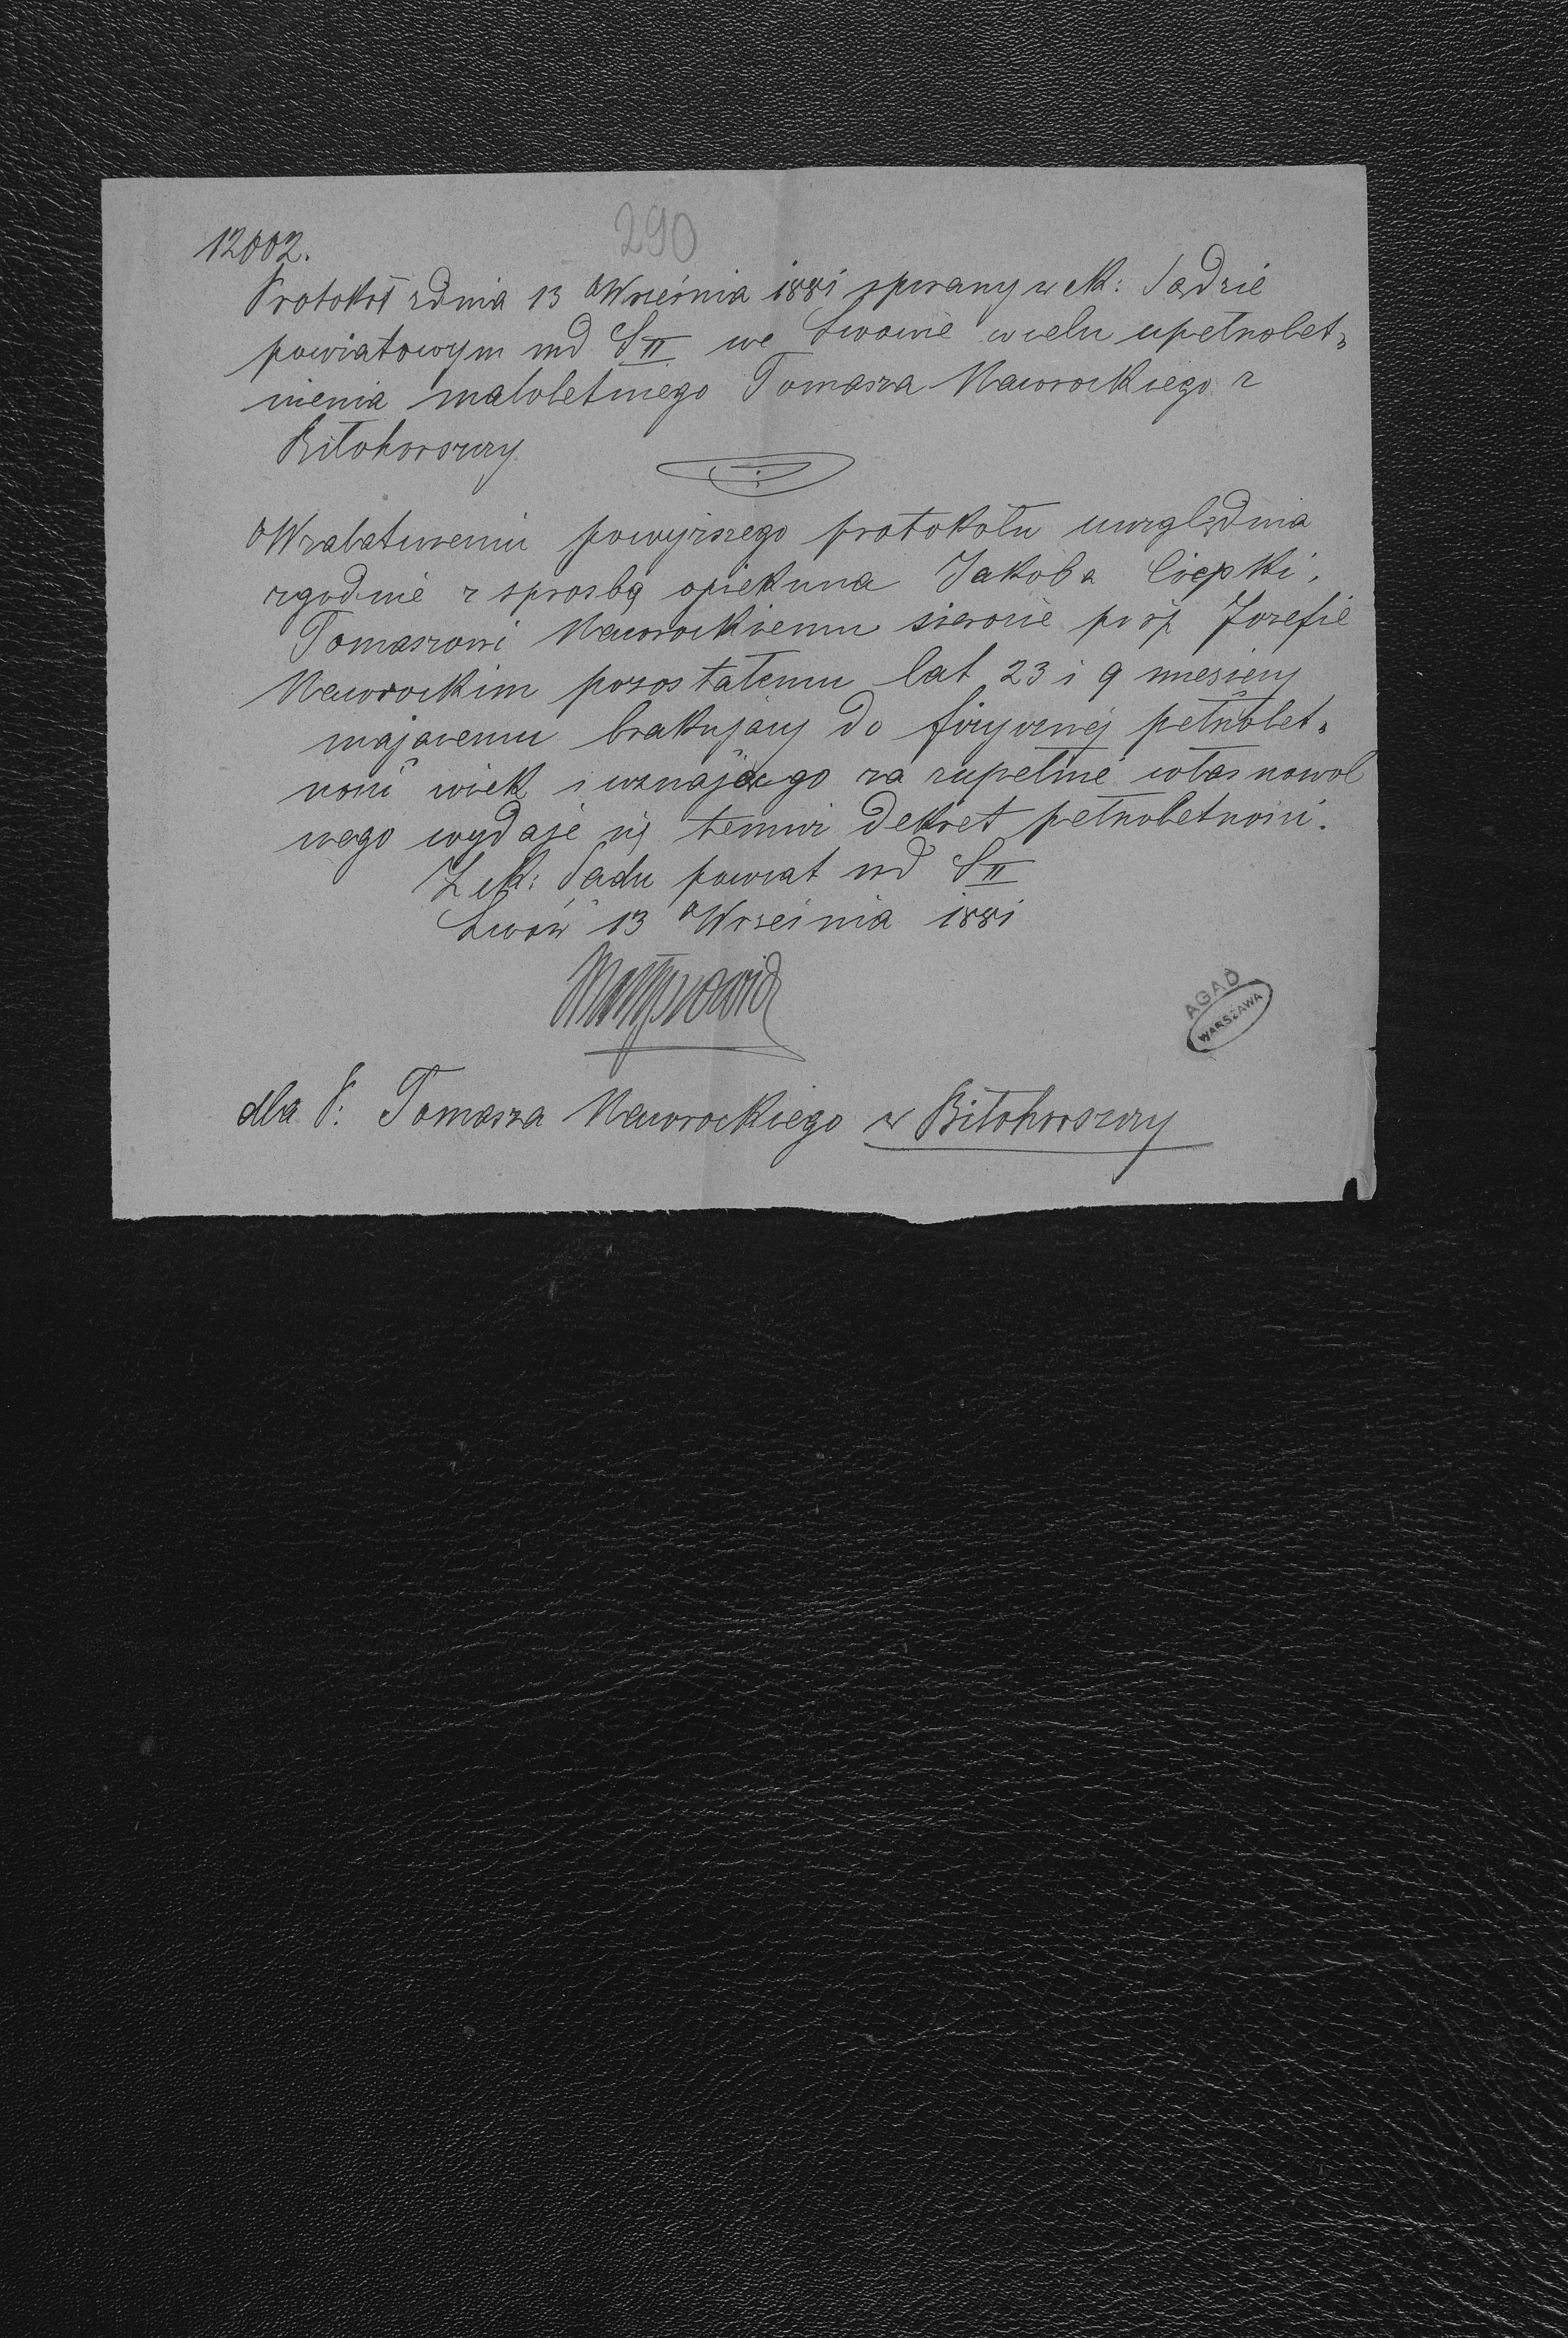 290
12002.
Protokół zdnia 13 Września 1881 spisany w ck: Sądzie
powiatowym md S II we Lwowie w celu upełnolet„
nienia małoletniego Tomasza Nawrockiego z
Biłohorszczy
W załatwieniu powyższego protokołu uwzględnia
zgodnie z sprosbą opiekuna Jakoba Ciepki,
Tomaszowi Nawrockiemu sierocie po śp Jozefie
Nawrockim pozostałemu lat 23 i 9 miesięcy
mającemu brakujący do fizycznej pełnolet„
ności wiek i uznając go za zupełnie własnowol
nego wydaje się temuż dekret pełnoletności.
Z ck: Sądu powiat md S II
Lwów 13 Września 1881
AGAD
WARSZAWA
dla P: Tomasza Nawrockiego w Biłohorszczy